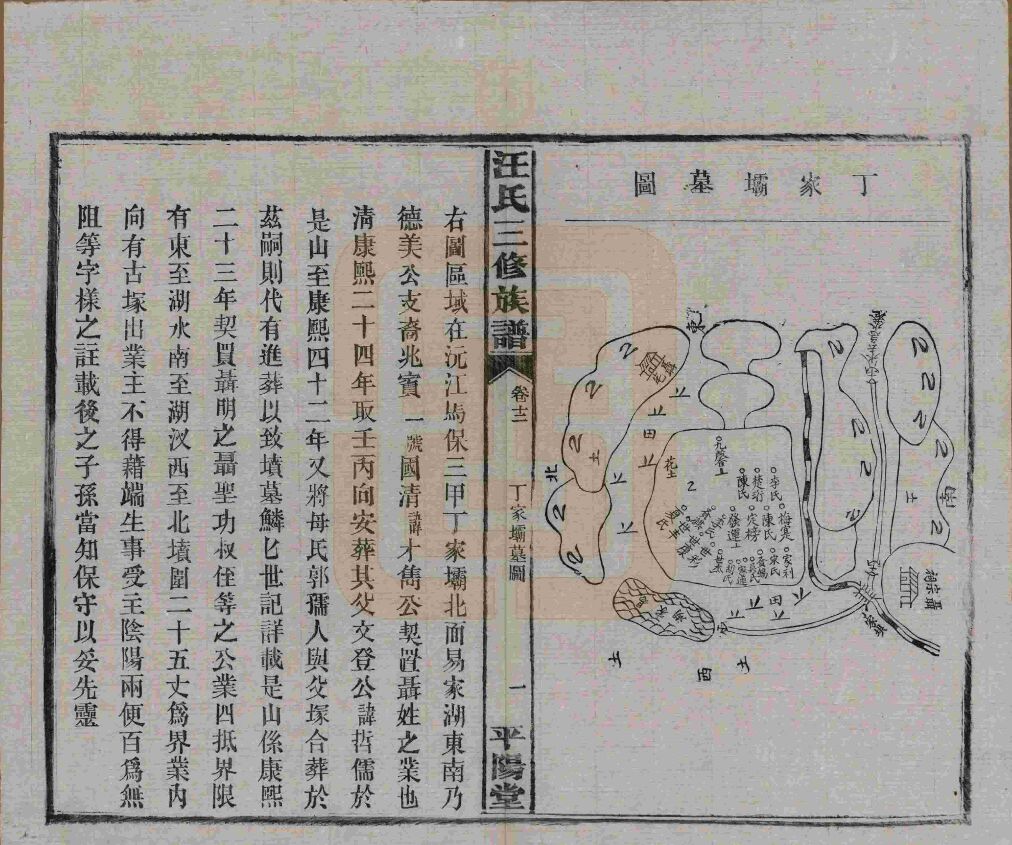 丁家壩墓圖
東
北
西
花土
元䃲上
李氏
楚珩
陳氏
梅蹇
陳氏
定榜
發運
家利
宋氏
聶宗祠
汪氏三修族譜
卷十二
丁家壩墓圖
一
平陽堂
右圖區域在沅江馬保三甲丁家壩北面易家湖東南乃
德美公支裔兆寳一號國清諱才雋公契置聶姓之業也
淸康熙二十四年取壬丙向安葬其父文登公諱哲儒於
是山至康熙四十二年又將母氏郭孺人與父塚合葬於
茲嗣則代有進葬以致墳墓鱗匕世記詳載是山係康熙
二十三年契買聶明之聶聖功叔侄等之公業四抵界限
有東至湖水南至湖汊西至北墳圍二十五丈爲界業內
向有古塚出業主不得藉端生事受主陰陽兩便百爲無
阻等字樣之註載後之子孫當知保守以妥先靈